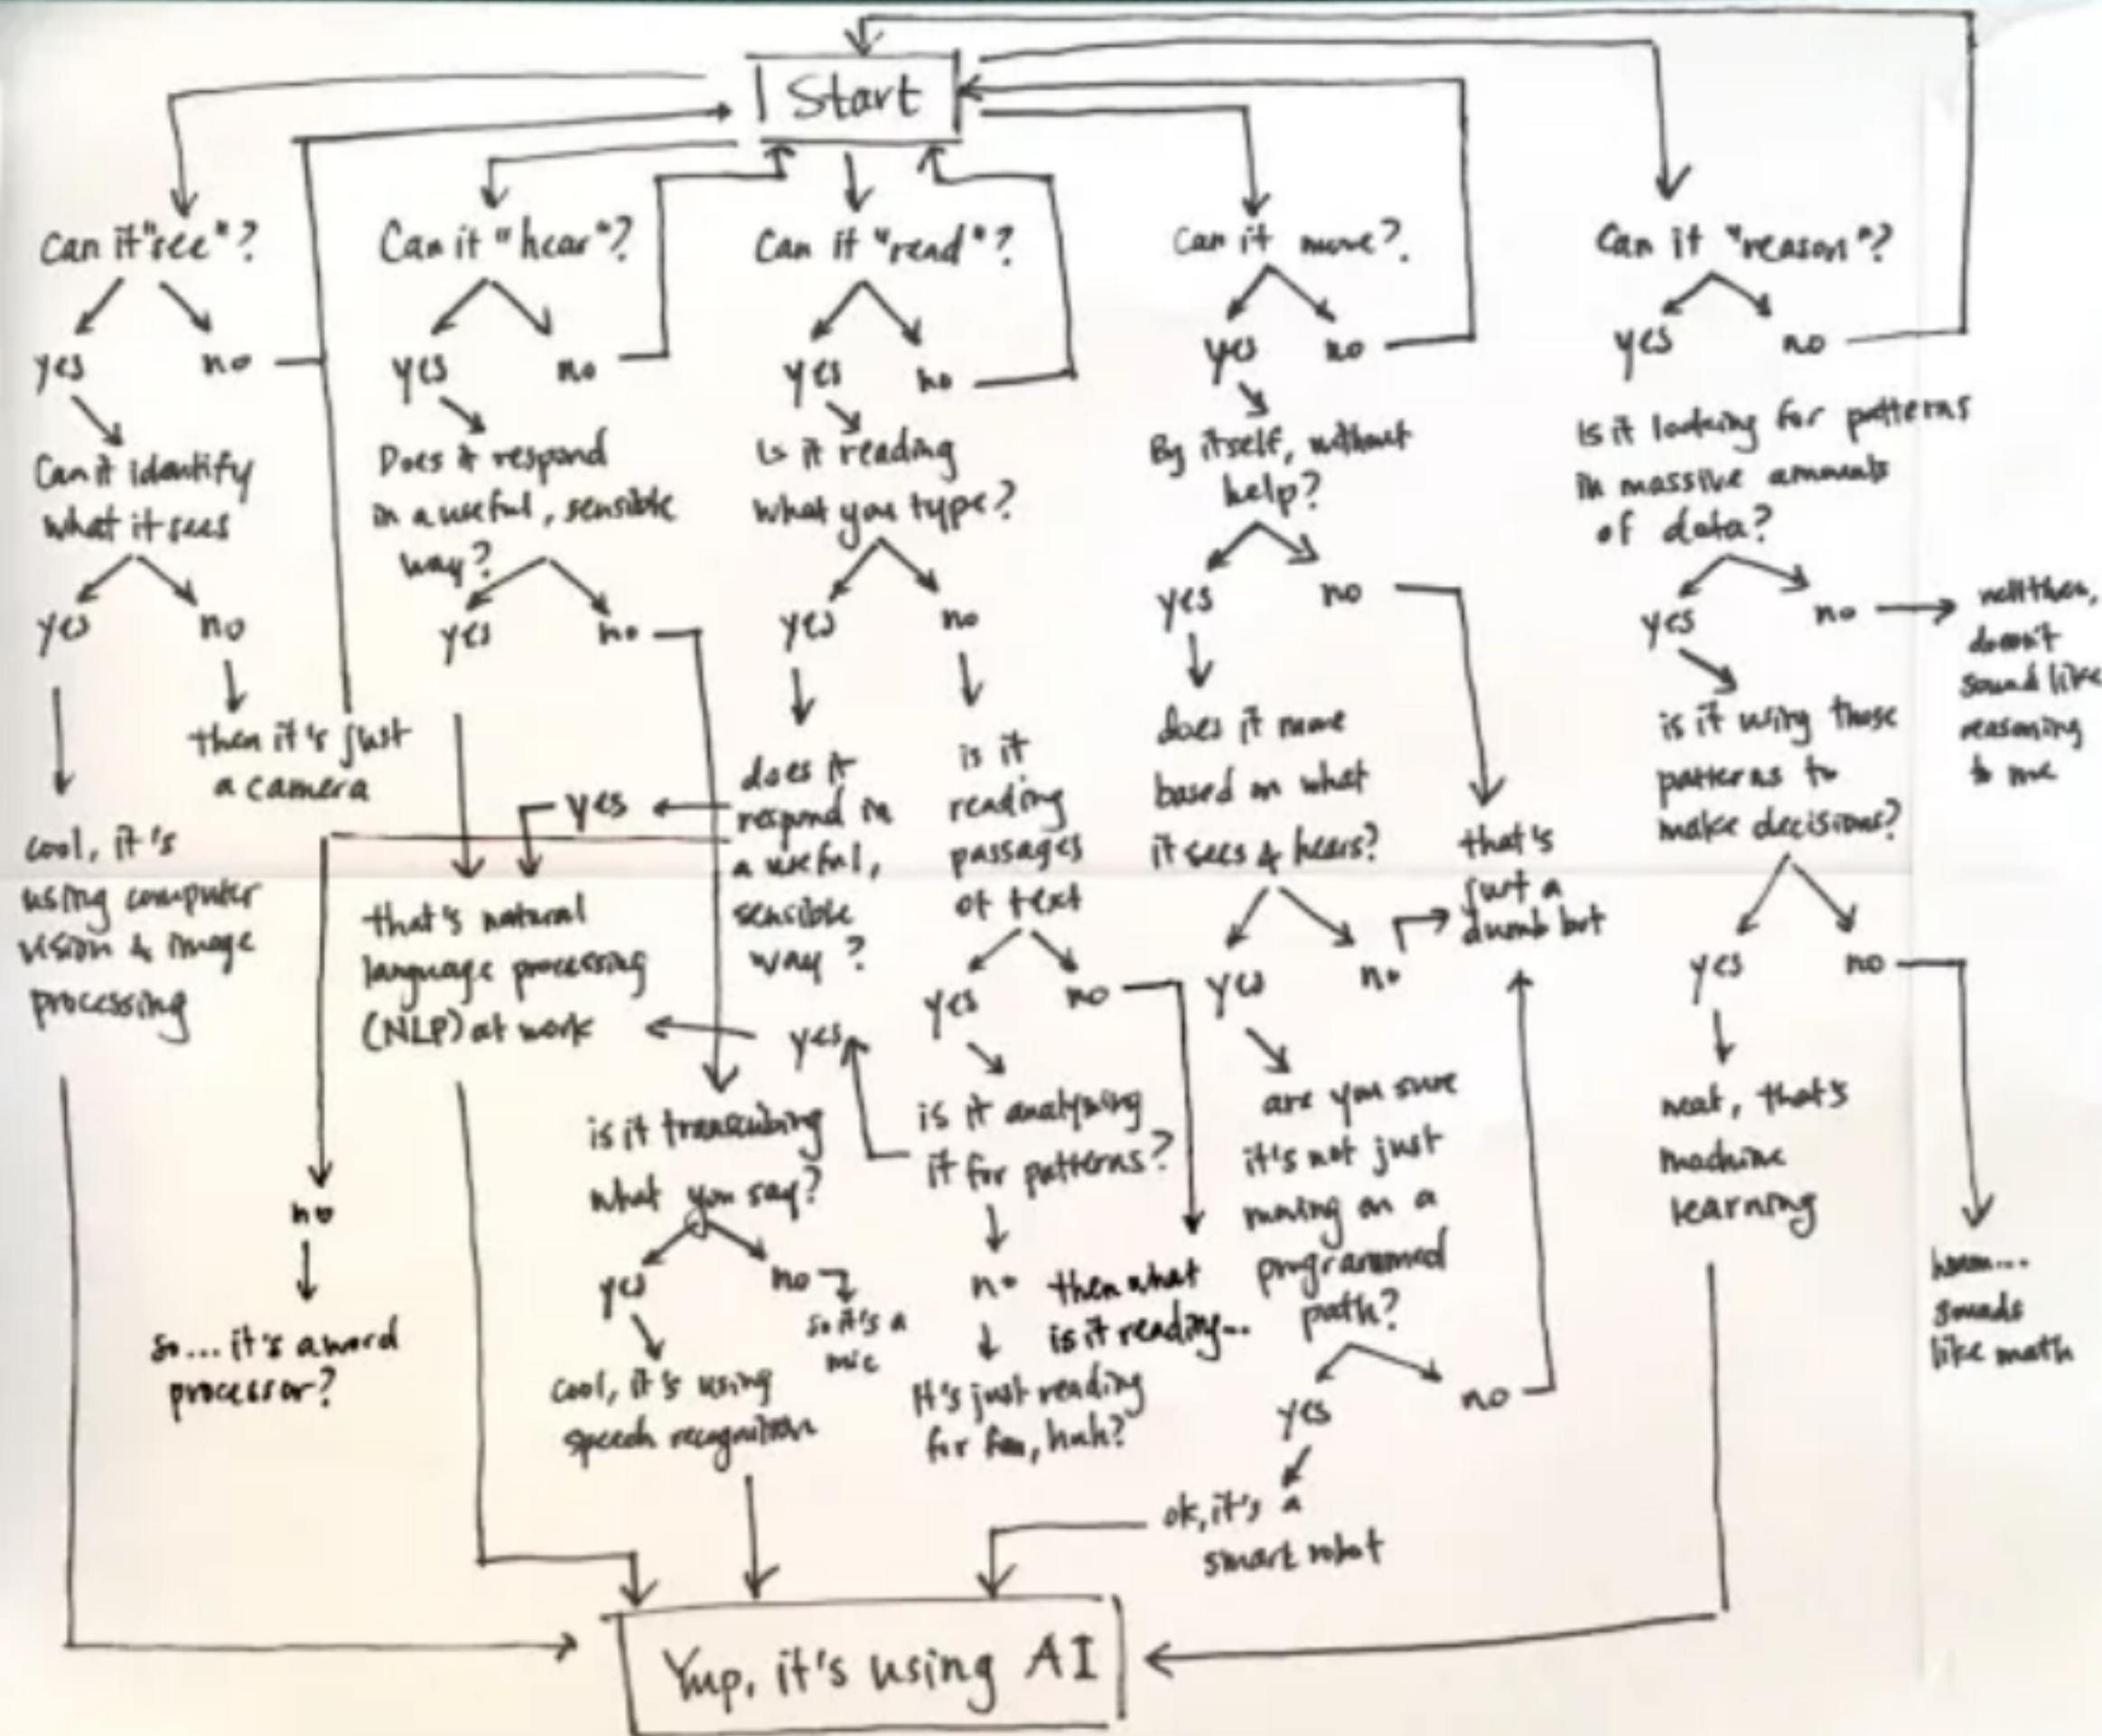 Start
Can it "see"?
yes
no
Can it identify
what it sees
yes
no
then it's just
a camera
cool, it's
using computer
vision & image
processing
Can it "hear"?
yes
no
Does it respond
in a useful, sensible
way?
yes
no
that's natural
language processing
(NLP) at work
is it transcribing
what you say?
yes
no
so it's a
mic
cool, it's using
speech recognition
Can it "read"?
yes
no
Is it reading
what you type?
yes
no
does it
respond in
a useful,
sensible
way?
yes
no
so... it's a word
processor?
is it
reading
passages
of text
yes
no
then what
is it reading...
is it analyzing
it for patterns?
yes
no
It's just reading
for fun, huh?
Can it move?
yes
no
By itself, without
help?
yes
no
does it move
based on what
it sees & hears?
yes
no
that's
just a
dumb bot
are you sure
it's not just
moving on a
programmed
path?
yes
no
ok, it's a
smart robot
Can it "reason"?
yes
no
Is it looking for patterns
in massive amounts
of data?
yes
no
well then,
doesn't
sound like
reasoning
to me
is it using those
patterns to
make decisions?
yes
no
neat, that's
machine
learning
hmm...
sounds
like math
Yup, it's using AI